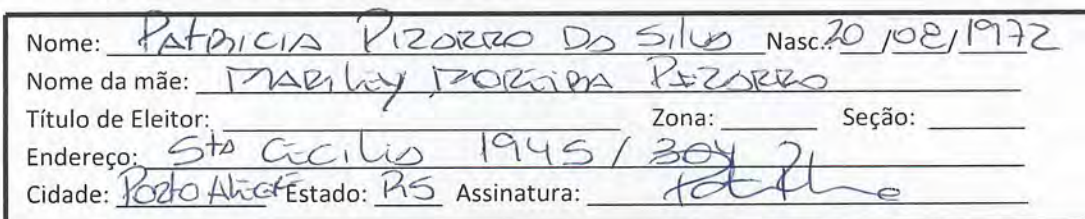 Nome: PATRICIA PIZORRO DA SILVA Nasc.: 20/08/1972
Nome da mãe: MARILEY MOREIRA PIZORRO
Título de Eleitor: Zona: Seção:
Endereço: Sta CECILIA 1945 / 304
Cidade: PORTO ALEGRE Estado: RS Assinatura: